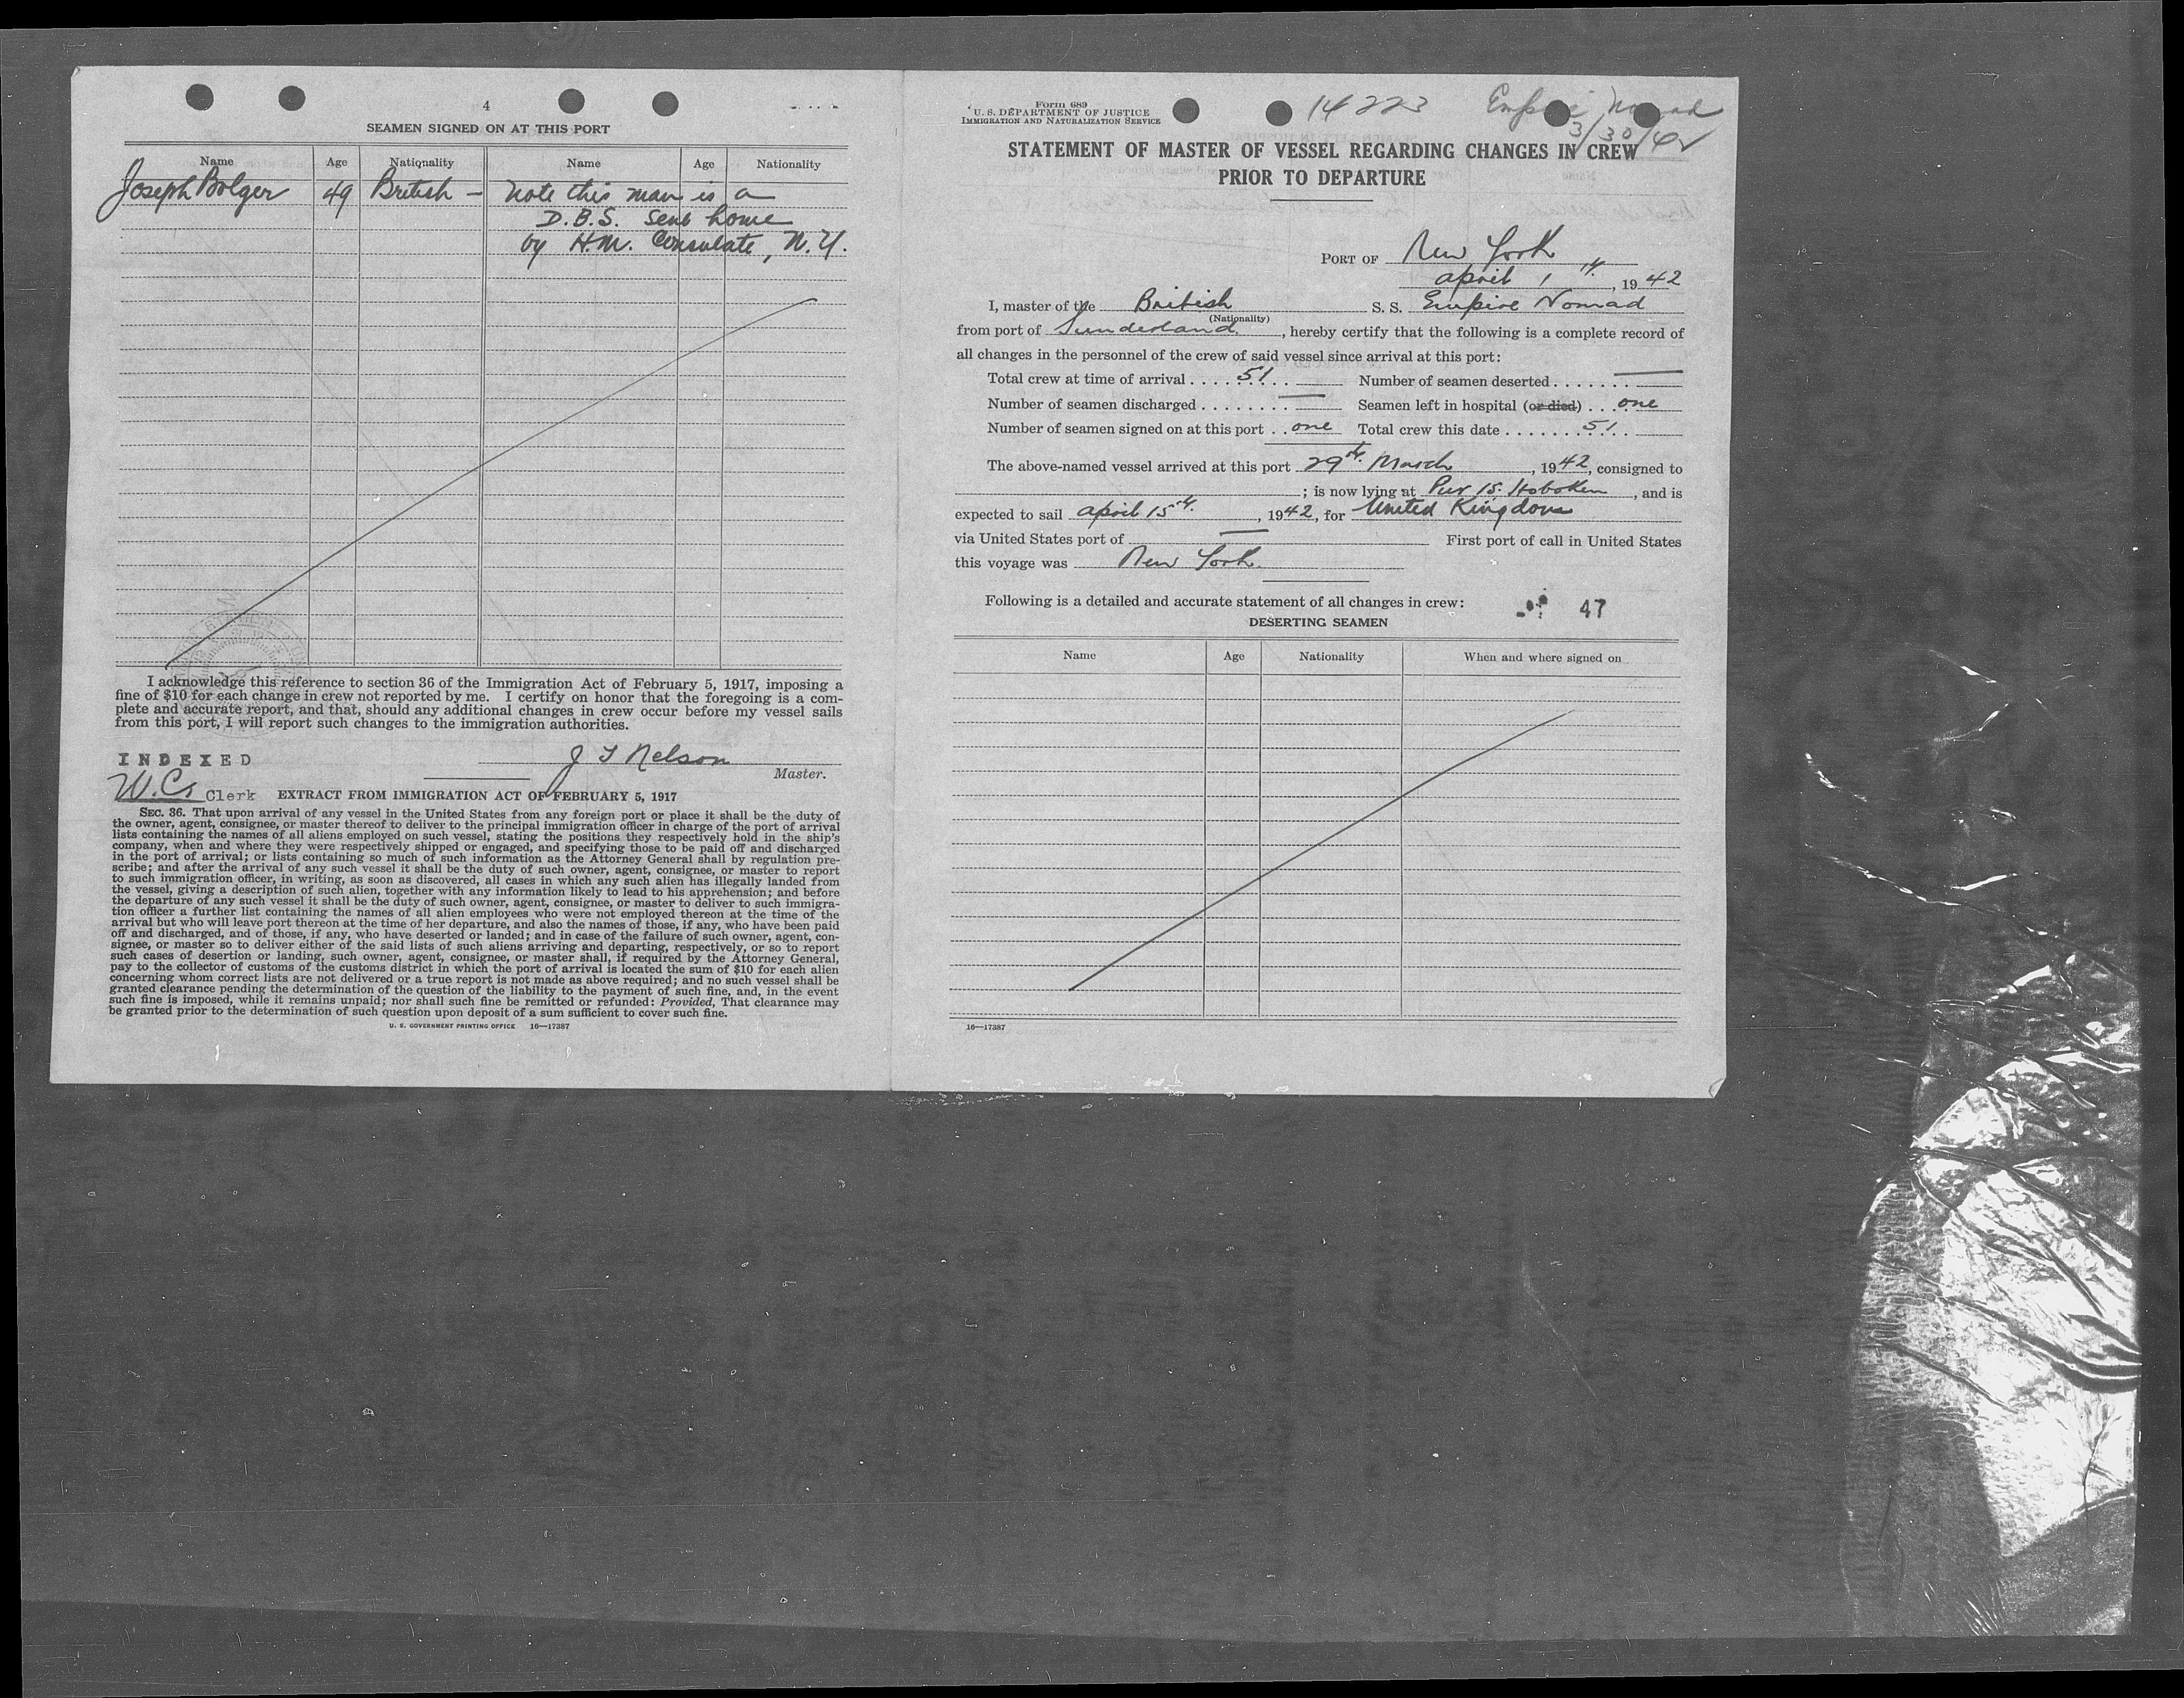 4
SEAMEN SIGNED ON AT THIS PORT
Name Age Nationality Name Age Nationality
Joseph Bolger 49 British — Note this man is a
D.B.S. sent home
by H.M. Consulate, N.Y.
I acknowledge this reference to section 36 of the Immigration Act of February 5, 1917, imposing a
fine of $10 for each change in crew not reported by me. I certify on honor that the foregoing is a com-
plete and accurate report, and that, should any additional changes in crew occur before my vessel sails
from this port, I will report such changes to the immigration authorities.
INDEXED
J Nelson
Master.
Clerk
EXTRACT FROM IMMIGRATION ACT OF FEBRUARY 5, 1917
SEC. 36. That upon arrival of any vessel in the United States from any foreign port or place it shall be the duty of
the owner, agent, consignee, or master thereof to deliver to the principal immigration officer in charge of the port of arrival
lists containing the names of all aliens employed on such vessel, stating the positions they respectively hold in the ship's
company, when and where they were respectively shipped or engaged, and specifying those to be paid off and discharged
in the port of arrival; or lists containing so much of such information as the Attorney General shall by regulation pre-
scribe; and after the arrival of any such vessel it shall be the duty of such owner, agent, consignee, or master to report
to such immigration officer, in writing, as soon as discovered, all cases in which any such alien has illegally landed from
the vessel, giving a description of such alien, together with any information likely to lead to his apprehension; and before
the departure of any such vessel it shall be the duty of such owner, agent, consignee, or master to deliver to such immigra-
tion officer a further list containing the names of all alien employees who were not employed thereon at the time of the
arrival but who will leave port thereon at the time of her departure, and also the names of those, if any, who have been paid
off and discharged, and of those, if any, who have deserted or landed; and in case of the failure of such owner, agent, con-
signee, or master so to deliver either of the said lists of such aliens arriving and departing, respectively, or so to report
such cases of desertion or landing, such owner, agent, consignee, or master shall, if required by the Attorney General,
pay to the collector of customs of the customs district in which the port of arrival is located the sum of $10 for each alien
concerning whom correct lists are not delivered or a true report is not made as above required; and no such vessel shall be
granted clearance pending the determination of the question of the liability to the payment of such fine, and, in the event
such fine is imposed, while it remains unpaid; nor shall such fine be remitted or refunded: Provided, That clearance may
be granted prior to the determination of such question upon deposit of a sum sufficient to cover such fine.
U. S. GOVERNMENT PRINTING OFFICE 16—17387
Form 689
U. S. DEPARTMENT OF JUSTICE
IMMIGRATION AND NATURALIZATION SERVICE
14223
Empire Nomad
3/30/42
STATEMENT OF MASTER OF VESSEL REGARDING CHANGES IN CREW
PRIOR TO DEPARTURE
PORT OF New York
April 14, 1942
I, master of the British S. S. Empire Nomad
(Nationality)
from port of Sunderland, hereby certify that the following is a complete record of
all changes in the personnel of the crew of said vessel since arrival at this port:
Total crew at time of arrival .... 51 .. Number of seamen deserted ....... —
Number of seamen discharged ........ — Seamen left in hospital (or died) ... one
Number of seamen signed on at this port .. one Total crew this date ....... 51 ..
The above-named vessel arrived at this port 29th March, 1942, consigned to
; is now lying at Pier 15. Hoboken, and is
expected to sail April 15th, 1942, for United Kingdom
via United States port of — First port of call in United States
this voyage was New York.
Following is a detailed and accurate statement of all changes in crew:
47
DESERTING SEAMEN
Name Age Nationality When and where signed on
16—17387